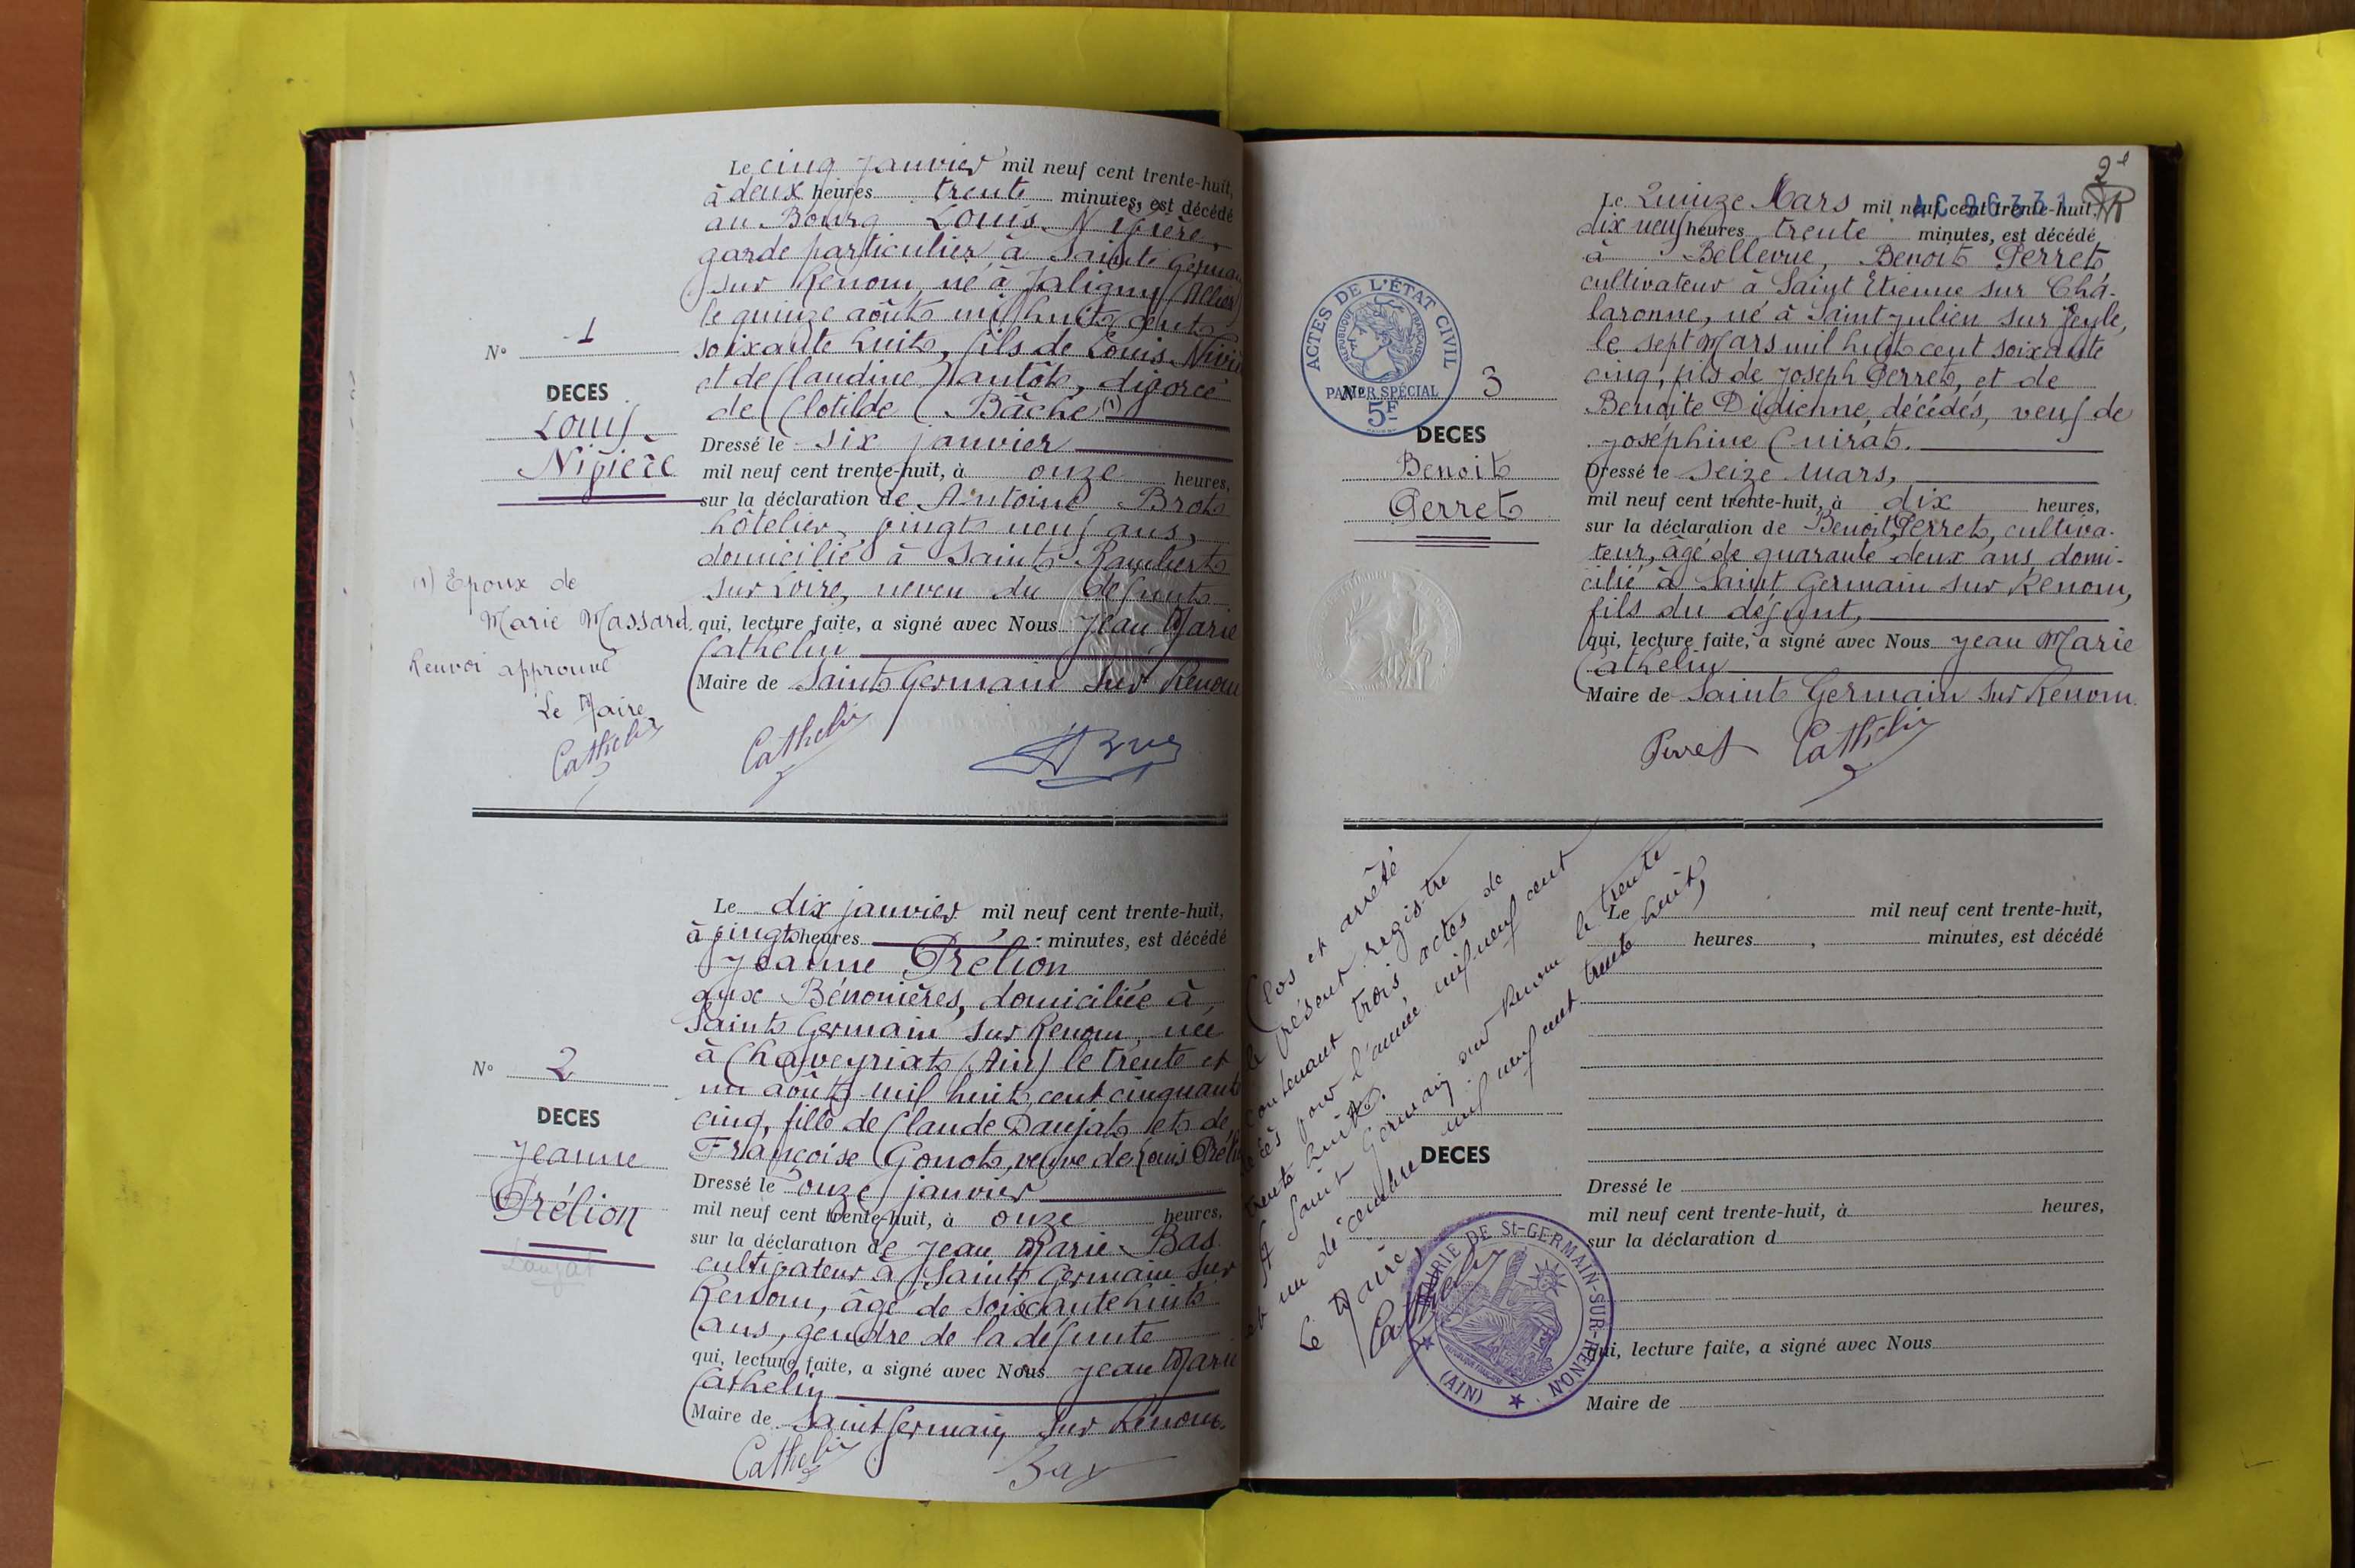 Le cinq janvier mil neuf cent trente-huit,
à deux heures trente minutes, est décédé
au Bourg Louis Nivière,
garde particulier à Saint Germain
sur Renom, né à Jaligny (Allier)
le quinze août mil huit cent
soixante huit, fils de Louis
et de Claudine divorcé
de Clotilde Bâche (1)
Nº 1
DECES
Louis
Nivière
Dressé le six janvier
mil neuf cent trente-huit, à onze heures,
sur la déclaration de Antoine Brot
hôtelier, vingt neuf ans,
domicilié à Saint Rambert
sur Loire, neveu du défunt
qui, lecture faite, a signé avec Nous Jean Marie
Cathelin
Maire de Saint Germain sur Renom
(1) Epoux de
Marie Massard.
Renvoi approuvé
Le Maire
Cathelin
Cathelin
Le dix janvier mil neuf cent trente-huit,
à vingt heures minutes, est décédé
Jeanne Prélion
aux Bénonières, domiciliée à
Saint Germain sur Renom, née
à Chaveyriat (Ain) le trente et
un août mil huit cent cinquante
cinq, fille de Claude Daujat et de
Françoise Gonot, veuve de Louis
Nº 2
DECES
Jeanne
Prélion
Dressé le onze janvier
mil neuf cent trente-huit, à onze heures,
sur la déclaration de Jean Marie Bas
cultivateur à Saint Germain sur
Renom, âgé de soixante huit
ans, gendre de la défunte
qui, lecture faite, a signé avec Nous Jean Marie
Cathelin
Maire de Saint Germain sur Renom.
Cathelin Bas
2e
Le Quinze Mars mil neuf cent trente-huit,
dix neuf heures trente minutes, est décédé
à Bellevue, Benoit Perret
cultivateur à Saint Etienne sur Cha-
laronne, né à Saint Julien sur Veyle,
le sept Mars mil huit cent soixante
cinq, fils de Joseph Perret, et de
Benoîte Didienne, décédés, veuf de
Joséphine Cuirat.
ACTES DE L'ÉTAT CIVIL
RÉPUBLIQUE FRANÇAISE
PAPIER SPÉCIAL
5F
Nº 3
DECES
Benoit
Perret
Dressé le seize Mars,
mil neuf cent trente-huit, à dix heures,
sur la déclaration de Benoit Perret, cultiva-
teur, âgé de quarante deux ans domi-
cilié à Saint Germain sur Renom,
fils du défunt,
qui, lecture faite, a signé avec Nous Jean Marie
Cathelin
Maire de Saint Germain sur Renom.
Perret Cathelin
Clos et arrêté
le présent registre
contenant trois actes de
décès pour l'année mil neuf cent
trente huit.
A Saint Germain sur Renom le trente
et un décembre mil neuf cent trente huit,
Le Maire,
Cathelin
MAIRIE DE St-GERMAIN-SUR-RENON
RÉPUBLIQUE FRANÇAISE
(AIN)
Le mil neuf cent trente-huit,
heures , minutes, est décédé
DECES
Dressé le
mil neuf cent trente-huit, à heures,
sur la déclaration d
qui, lecture faite, a signé avec Nous
Maire de